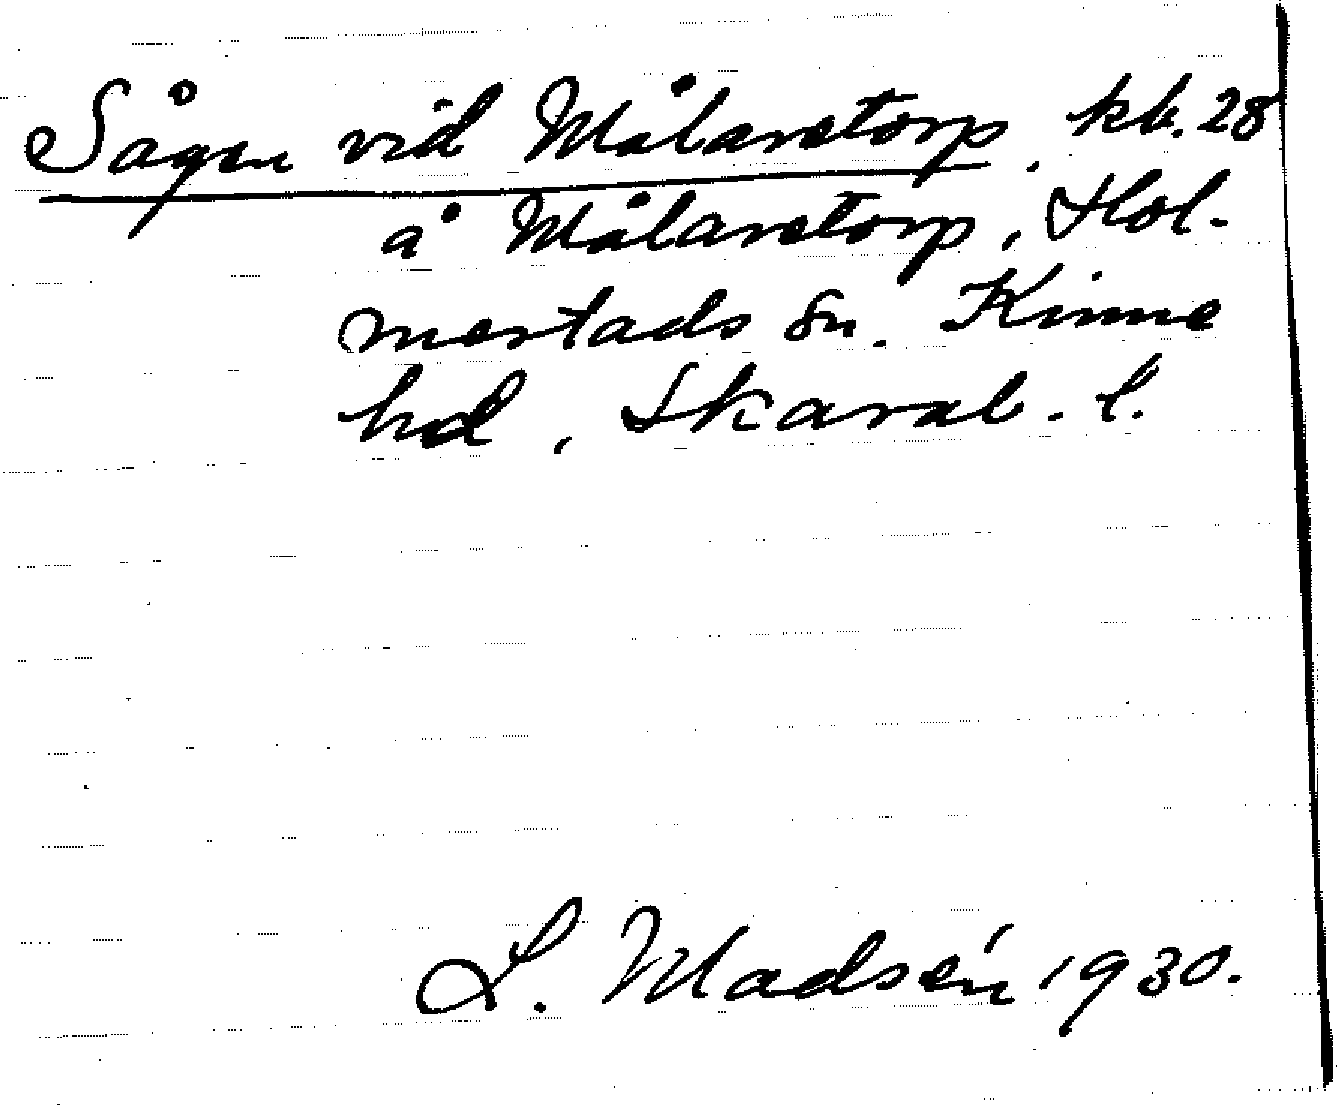 Sågen vid Målaretorp, kb. 28
å Målaretorp, Hol-
mestads sn. Kinne
hd, Skarab. l.
L. Madsén 1930.